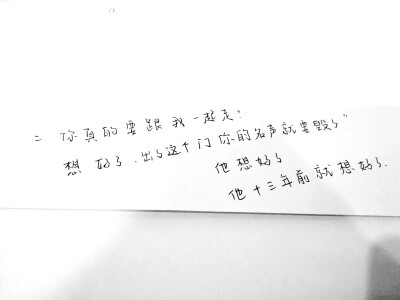 “你真的要跟我一起走?
想好了.出了这个门你的名声就要毁了”
他想好了
他十三年前就想好了.